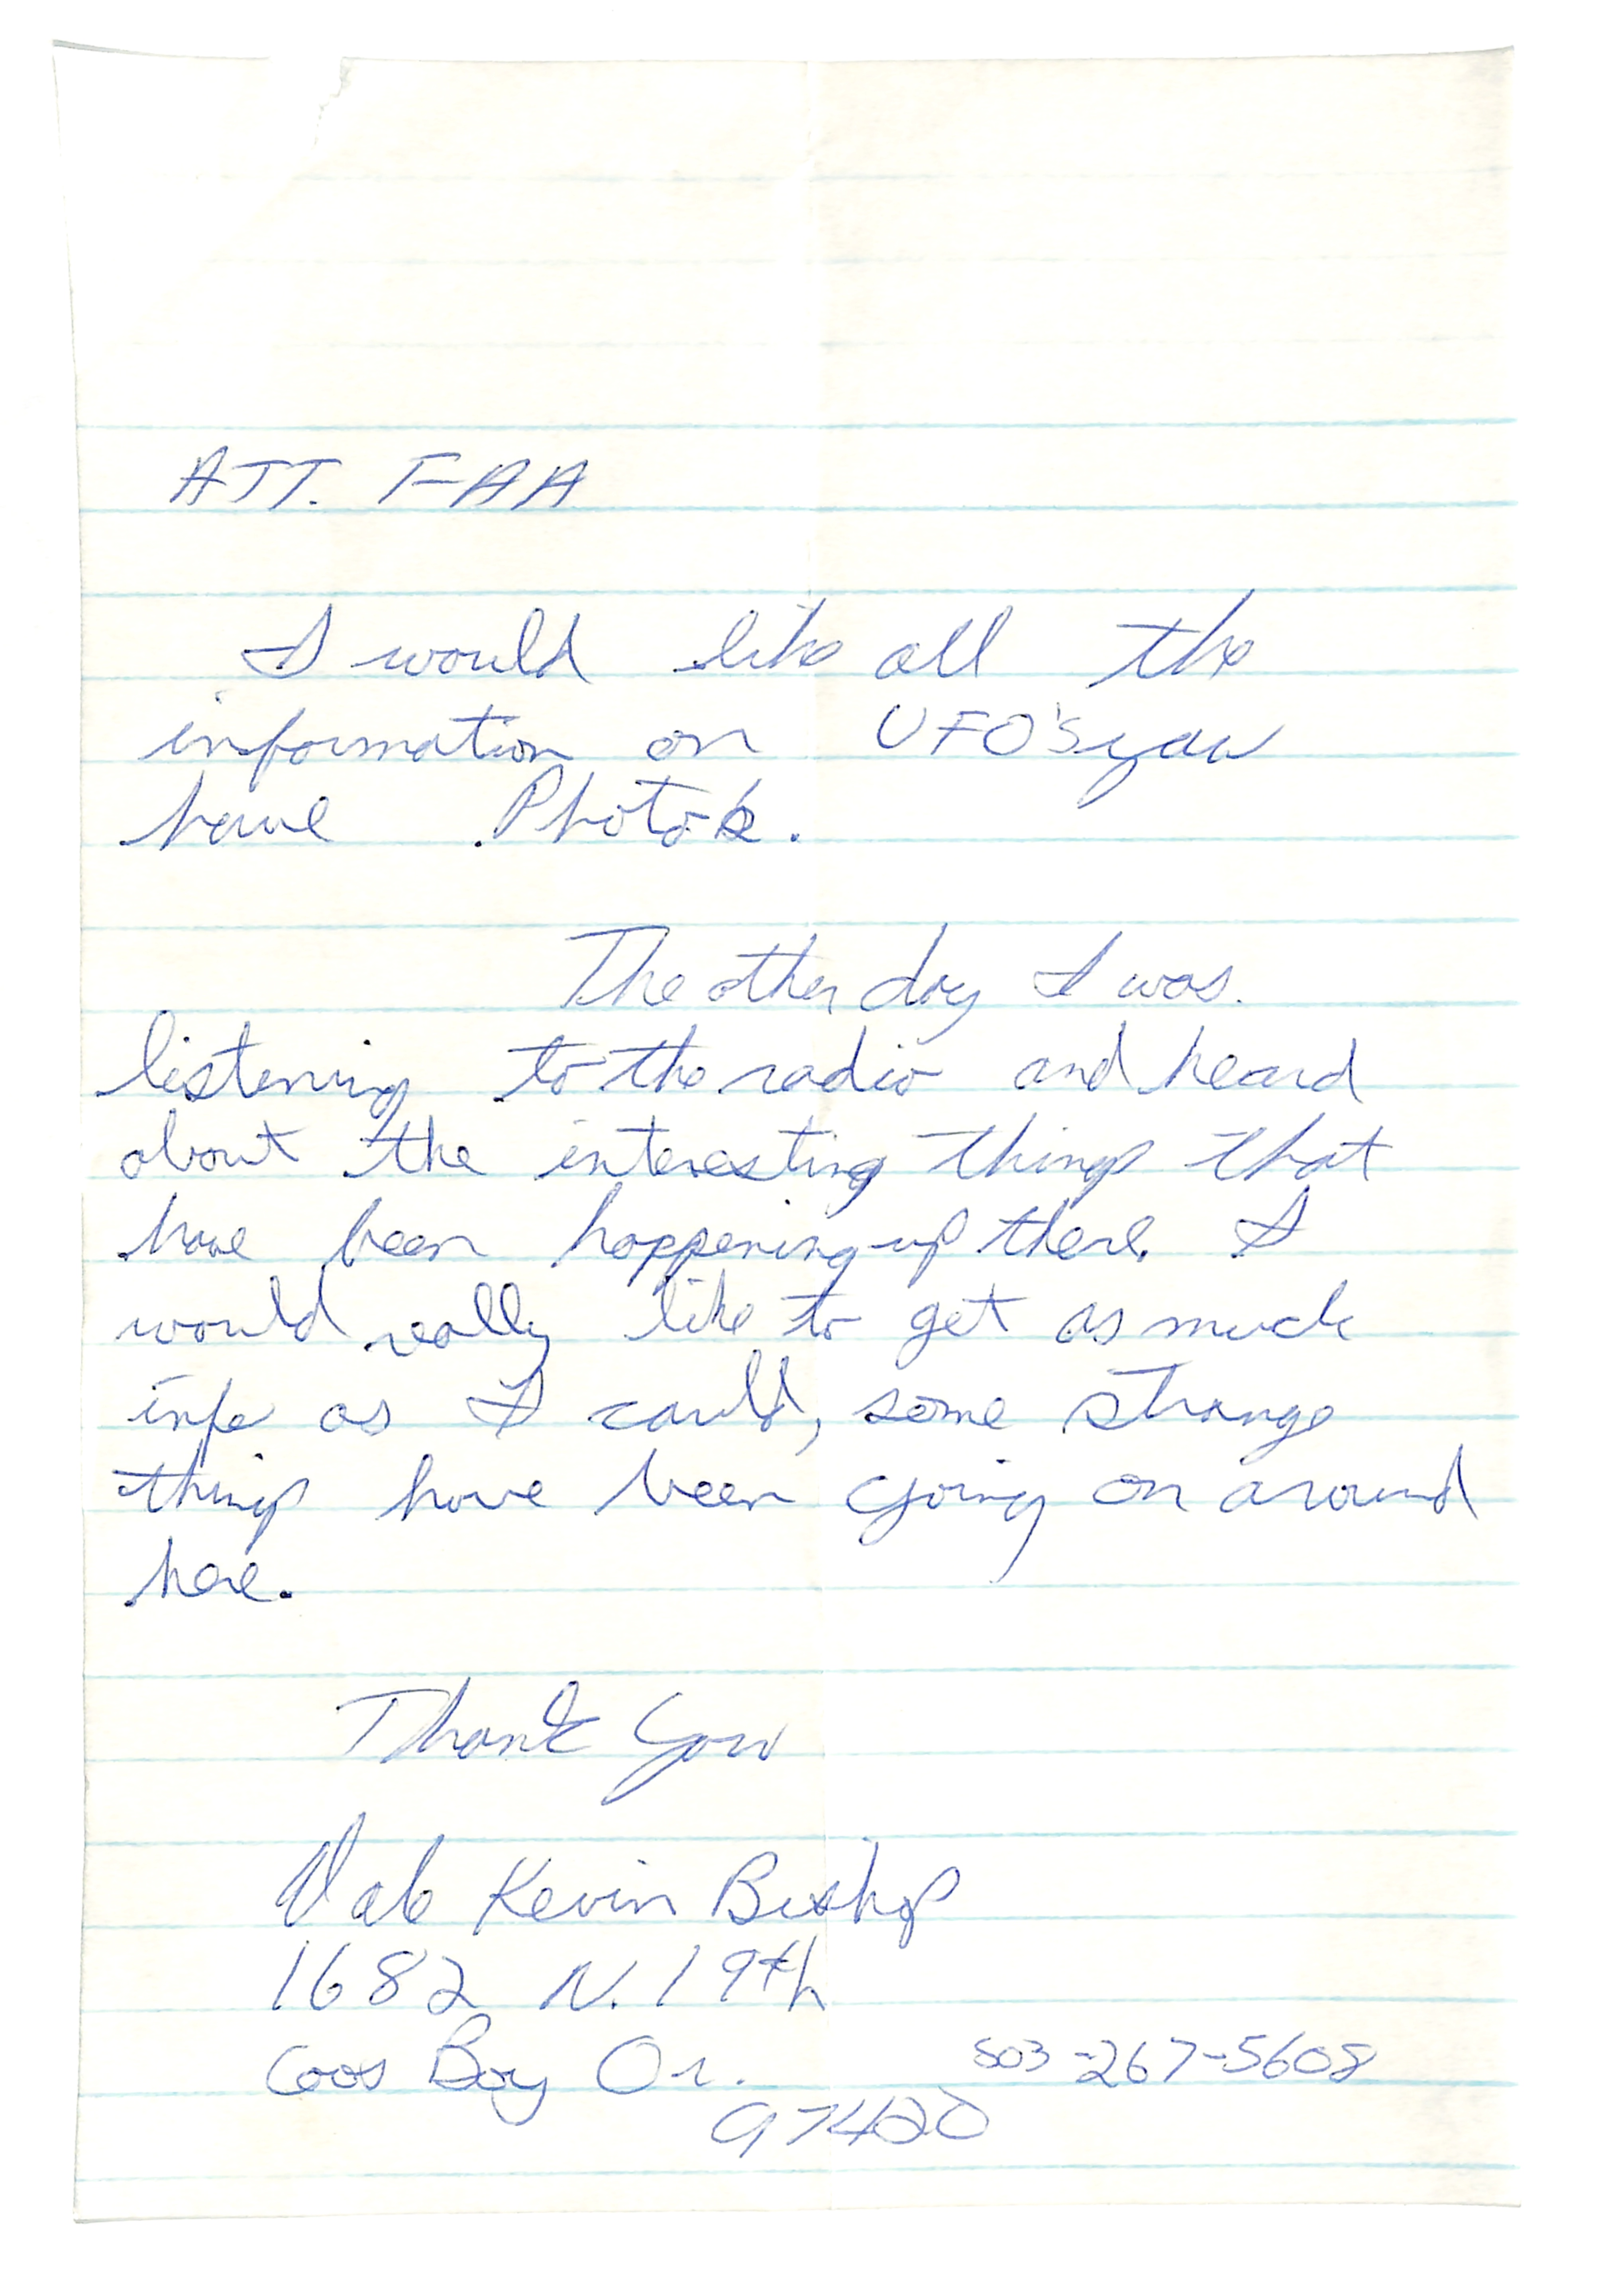 ATT. FAA
I would like all the
information on UFO'S you
have Photo's.
The other day I was.
listening to the radio and heard
about the interesting things that
have been happening up there. I
would really like to get as much
info as I could, some strange
things have been going on around
here.
Thank You
Dale Kevin Bishop
1682 N. 19th
Coos Bay Or. 503-267-5608
97420